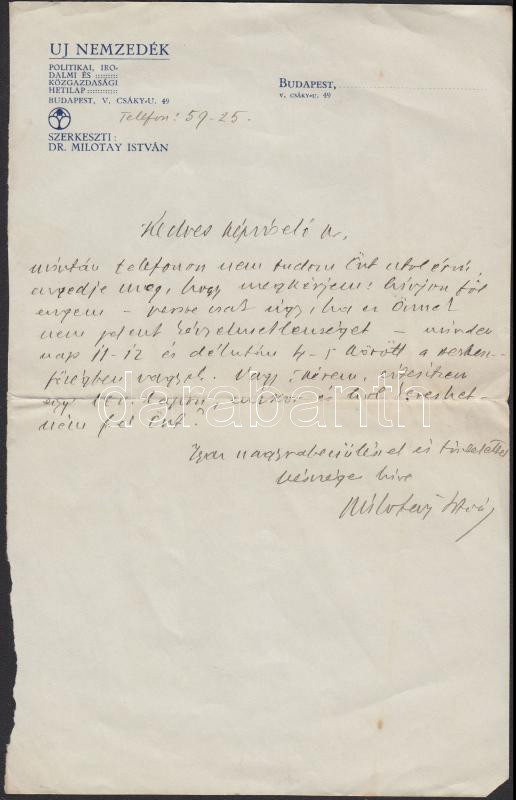 UJ NEMZEDÉK
POLITIKAI, IRO-
DALMI ÉS
KÖZGAZDASÁGI
HETILAP
BUDAPEST, V. CSÁKY-U. 49
Telefon: 59-25.
SZERKESZTI:
DR. MILOTAY ISTVÁN
BUDAPEST,
V. CSÁKY-U. 49
Kedves képviselő úr,
miután telefonon nem tudom Önt utol érni,
engedje meg, hogy megkérjem: hívjon föl
engem – persze csak úgy, ha ez Önnek
nem jelent kényelmetlenséget – minden
nap 11-12 és délután 4-5 között a szerkesz-
tőségben vagyok. Vagy, kérem, értesítsen
egy lev. lapon, mikor és hol kereshet-
ném fel Önt?
Igaz nagyrabecsüléssel és tisztelettel
készséges híve
Milotay István
darabanth